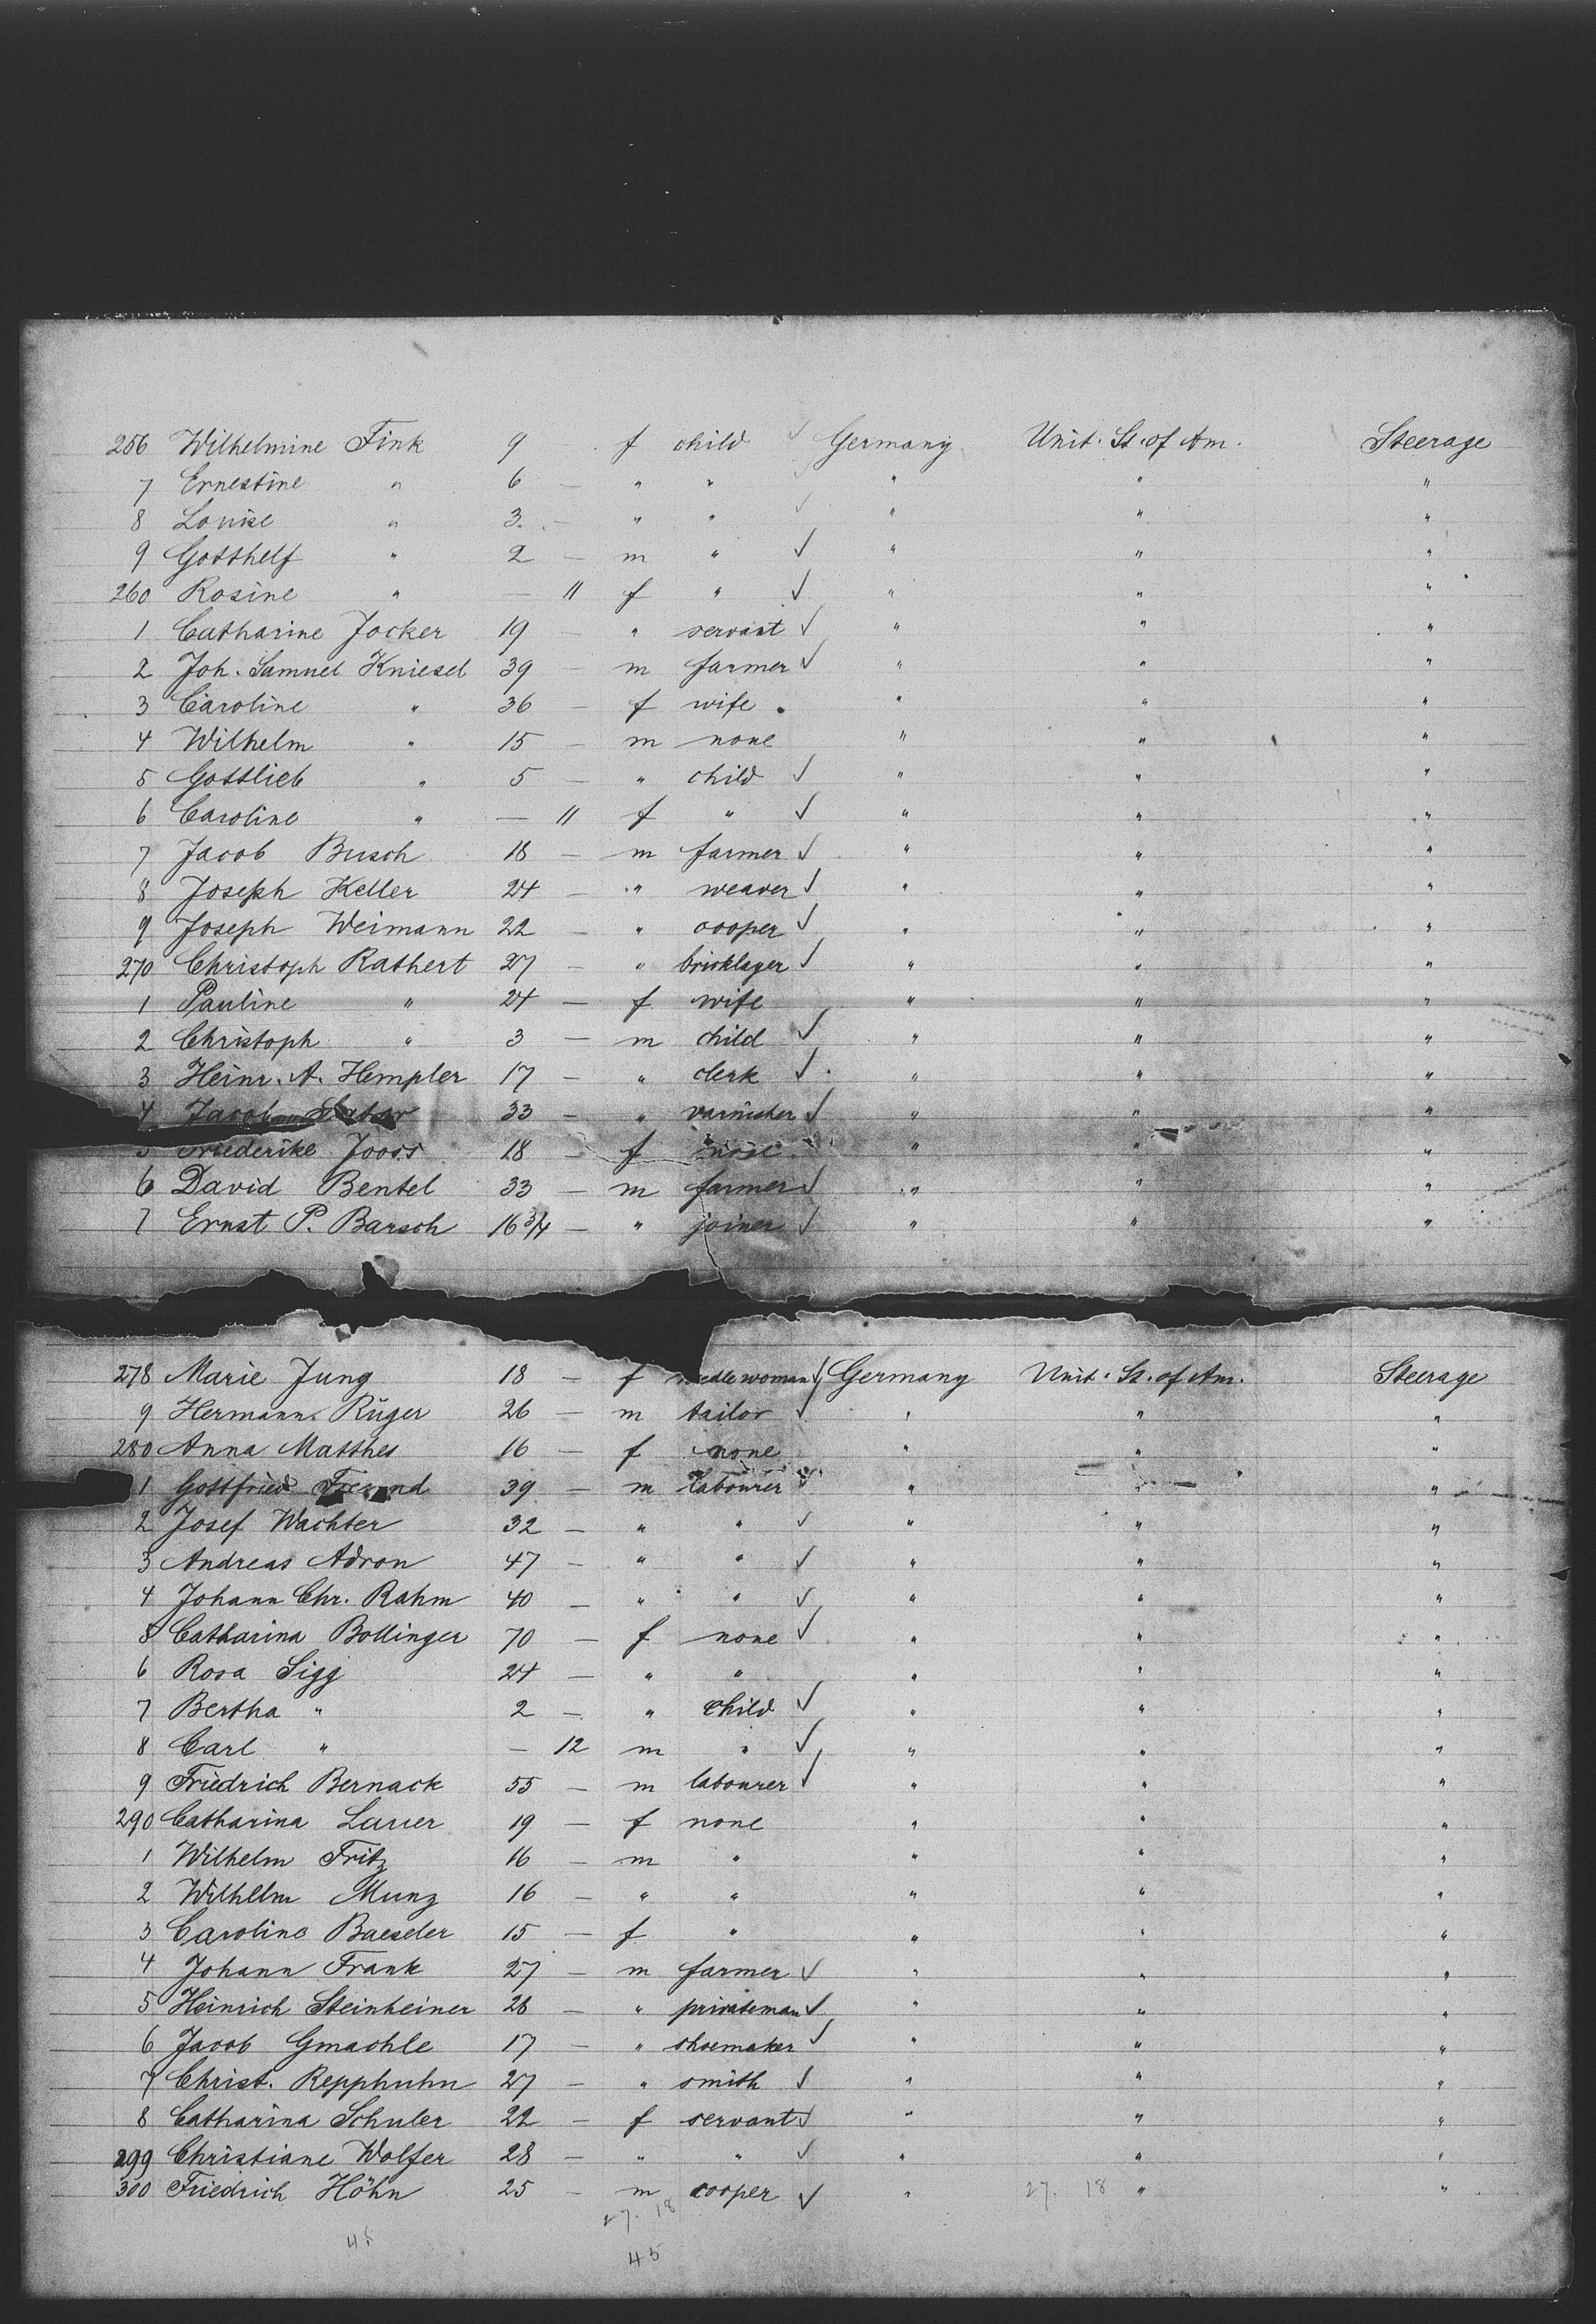 256 Wilhelmine Fink 9 f child ✓ Germany Unit. St. of Am. Steerage
7 Ernestine " 6 — " " ✓ " " "
8 Louise " 3 — " " ✓ " " "
9 Gotthelf " 2 — m " ✓ " " "
260 Rosine " — 11 f " ✓ " " "
1 Catharine Jocker 19 — " servant ✓ " " "
2 Joh. Samuel Kniesel 39 — m farmer ✓ " " "
3 Caroline " 36 — f wife " " "
4 Wilhelm " 15 — m none " " "
5 Gottlieb " 5 — " child ✓ " " "
6 Caroline " — 11 f " ✓ " " "
7 Jacob Busch 18 — m farmer ✓ " " "
8 Joseph Keller 24 — " weaver ✓ " " "
9 Joseph Weimann 22 — " cooper ✓ " " "
270 Christoph Rathert 27 — " bricklayer ✓ " " "
1 Pauline " 24 — f wife " " "
2 Christoph " 3 — m child ✓ " " "
3 Heinr. A. Hempler 17 — " clerk ✓ " " "
4 Jacob 33 — " varnisher ✓ " " "
5 Friederike Jooss 18 — f none " " "
6 David Bentel 33 — m farmer ✓ " " "
7 Ernst P. Barsch 16 3/4 — " joiner ✓ " " "
278 Marie Jung 18 — f needlewoman ✓ Germany Unit. St. of Am. Steerage
9 Hermann Rüger 26 — m tailor ✓ " " "
280 Anna Matthes 16 — f none " " "
1 Gottfried Freund 39 — m labourer ✓ " " "
2 Josef Wachter 32 — " " ✓ " " "
3 Andreas Adron 47 — " " ✓ " " "
4 Johann Chr. Rahm 40 — " " ✓ " " "
5 Catharina Bollinger 70 — f none ✓ " " "
6 Rosa Sigg 24 — " " " " "
7 Bertha " 2 — " child ✓ " " "
8 Carl " — 12 m " ✓ " " "
9 Friedrich Bernack 55 — m labourer ✓ " " "
290 Catharina Lauer 19 — f none " " "
1 Wilhelm Fritz 16 — m " " " "
2 Wilhelm Munz 16 — " " " " "
3 Caroline Baeseler 15 — f " " " "
4 Johann Frank 27 — m farmer ✓ " " "
5 Heinrich Steinheiner 28 — " privateman ✓ " " "
6 Jacob Gmachle 17 — " shoemaker ✓ " " "
7 Christ. Repphuhn 27 — " smith ✓ " " "
8 Catharina Schuler 22 — f servant ✓ " " "
299 Christiane Wolfer 28 — " " ✓ " " "
300 Friedrich Höhn 25 — m cooper ✓ " 27. 18 " "
27. 18
45 45